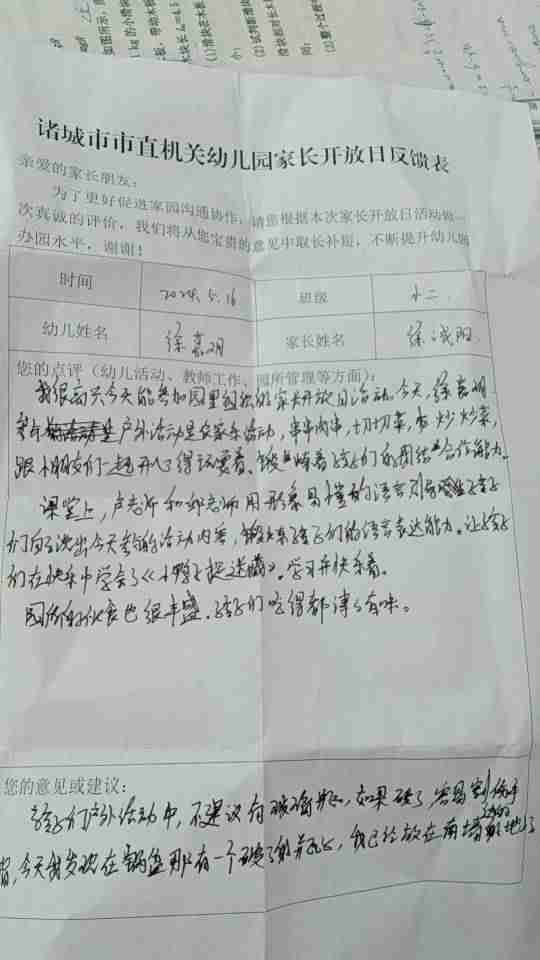 诸城市市直机关幼儿园家长开放日反馈表
亲爱的家长朋友：
为了更好促进家园沟通协作，请您根据本次家长开放日活动做一
次真诚的评价，我们将从您宝贵的意见中取长补短，不断提升幼儿园
办园水平，谢谢！
时间 2024.5.16 班级 小二.
幼儿姓名 徐嘉明 家长姓名 徐 阳
您的点评（幼儿活动、教师工作、园所管理等方面）：
我很高兴今天能参加园里组织的家长开放日活动.今天,徐嘉明
户外活动是农家乐活动,串串肉串,切切菜,炒炒菜,
跟小朋友们一起开心得玩耍着.锻炼着孩子们的团结合作能力.
课堂上,卢老师和邱老师用形象易懂的语言引导孩子
们自己说出今天的活动内容,锻炼孩子们的语言表达能力.让孩子
们在快乐中学会了《小鸭子捉迷藏》.学习并快乐着.
园所的伙食也很丰盛.孩子们吃得都津津有味。
您的意见或建议：
孩子们户外活动中,不建议有玻璃瓶,如果碎了容易割伤手
今天我发现在那有一个碎了的瓶,我已经放在南墙地了